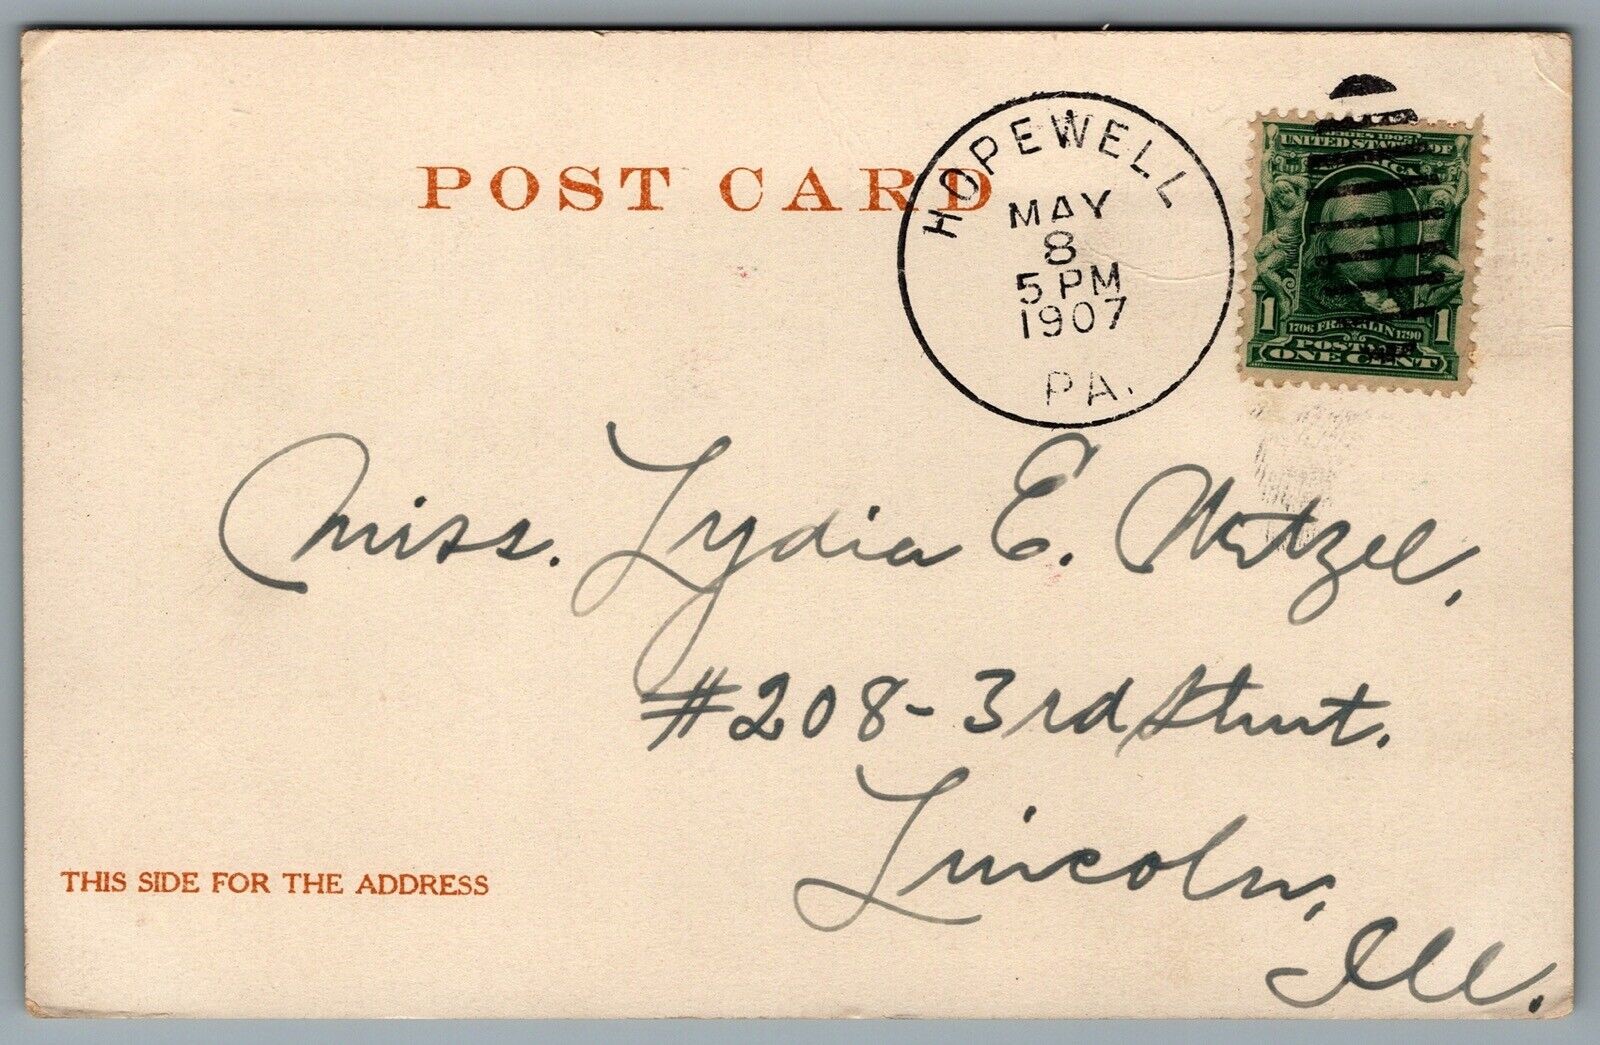 POST CARD
HOPEWELL
MAY
8
5 PM
1907
PA.
SERIES 1902
UNITED STATES OF
AMERICA
1 1706 FRANKLIN 1790 1
POSTAGE
ONE CENT
Miss. Lydia E. Wetzel,
#208-3rd Street.
Lincoln,
Ill.
THIS SIDE FOR THE ADDRESS